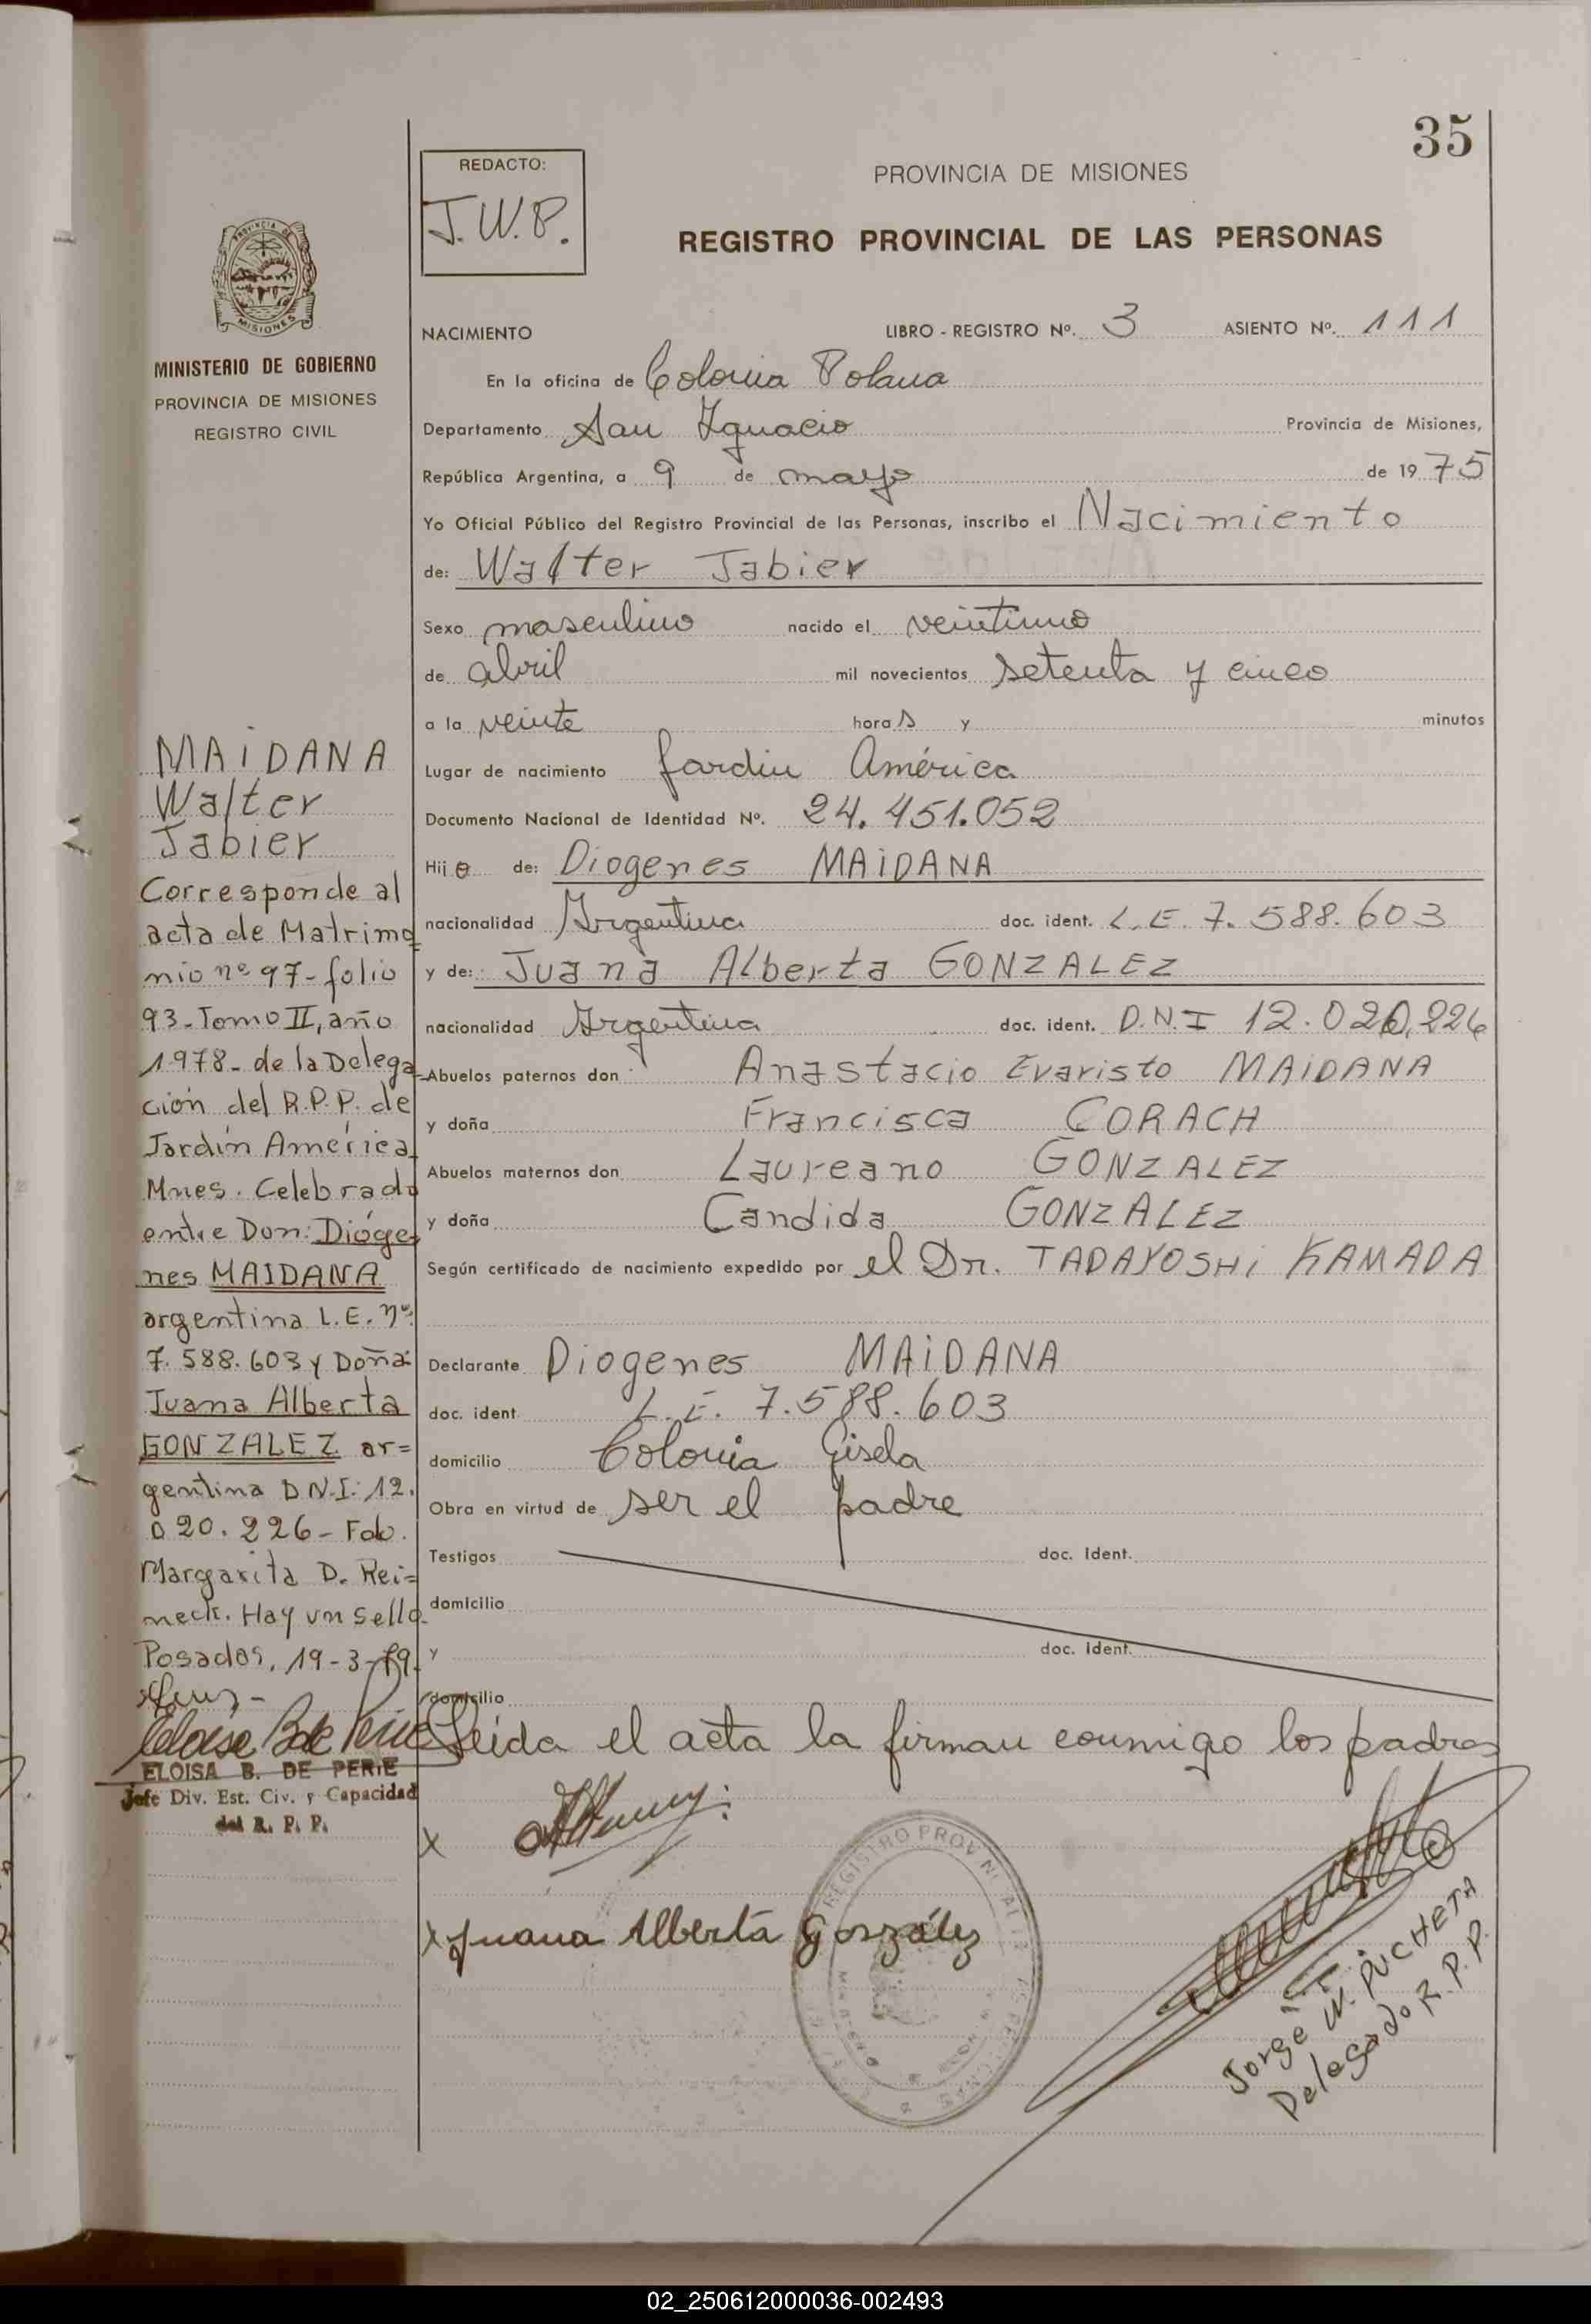 35
REDACTO:
J.W.P.
PROVINCIA DE MISIONES
REGISTRO PROVINCIAL DE LAS PERSONAS
PROVINCIA DE
MISIONES
MINISTERIO DE GOBIERNO
PROVINCIA DE MISIONES
REGISTRO CIVIL
NACIMIENTO LIBRO - REGISTRO Nº. 3 ASIENTO Nº. 111
En la oficina de Colonia Polana
Departamento San Ignacio Provincia de Misiones,
República Argentina, a 9 de mayo de 1975
Yo Oficial Público del Registro Provincial de las Personas, inscribo el Nacimiento
de: Walter Jabier
Sexo masculino nacido el veintiuno
de abril mil novecientos setenta y cinco
a la veinte horas y minutos
Lugar de nacimiento Jardin América
Documento Nacional de Identidad Nº. 24.451.052
Hijo de: Diogenes MAIDANA
nacionalidad Argentina doc. ident. L.E. 7.588.603
y de: Juana Alberta GONZALEZ
nacionalidad Argentina doc. ident. D.N.I 12.020.226
Abuelos paternos don Anastacio Evaristo MAIDANA
y doña Francisca CORACH
Abuelos maternos don Laureano GONZALEZ
y doña Candida GONZALEZ
Según certificado de nacimiento expedido por el Dr. TADAYOSHI KAMADA
Declarante Diogenes MAIDANA
doc. ident L.E. 7.588.603
domicilio Colonia Gisela
Obra en virtud de ser el padre
Testigos doc. ident.
domicilio
y doc. ident.
domicilio
Leida el acta la firman conmigo los padres
X
X Juana Alberta González
REGISTRO PROVINCIAL DE
Jorge W. PUCHETA
Delegado R.P.P.
MAIDANA
Walter
Jabier
Corresponde al
acta de Matrimo
nio nº 97-folio
93-Tomo II, año
1978- de la Delega
ción del R.P.P. de
Jardín América
Mnes. Celebrado
entre Don: Dióge
nes MAIDANA
argentina L.E. nº
7.588.603 y Doña
Juana Alberta
GONZALEZ ar=
gentina D.N.I. 12.
020.226- Fdo.
Margarita D. Rei=
neck. Hay un sello-
Posadas, 19-3-79.
Eloisa B de Perie
ELOISA B. DE PERIE
Jefe Div. Est. Civ. y Capacidad
del R. P. P.
02_250612000036-002493